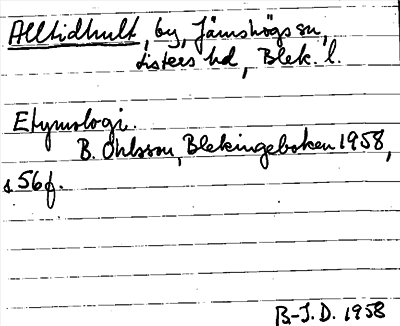 Alltidhult, by, Jämshögs sn,
Listers hd, Blek. l.
Etymologi.
B. Ohlsson, Blekingeboken 1958,
s. 56f.
B.-J.D. 1958